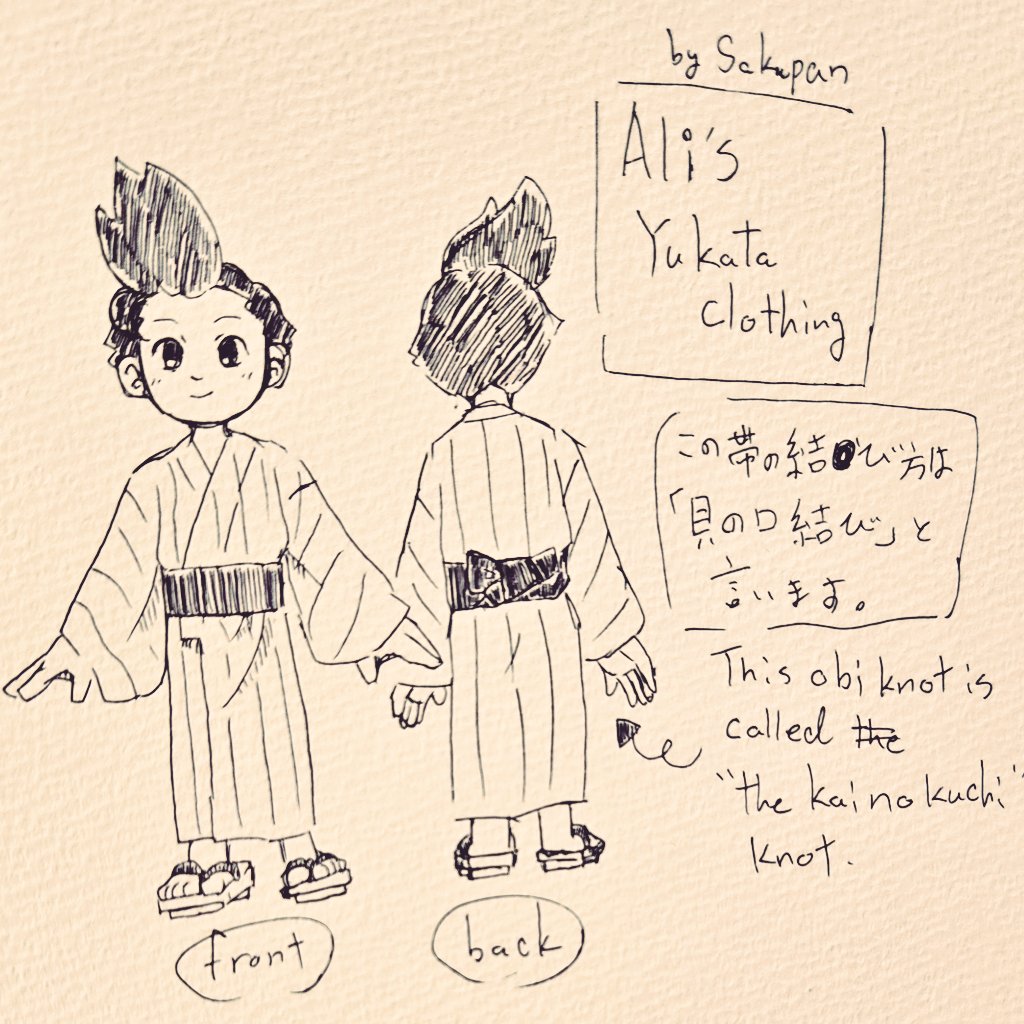 by Sakupan
Ali's
Yukata
clothing
この帯の結び方は
「貝の口結び」と
言います。
This obi knot is
called the
"the kai no kuchi"
knot.
front
back